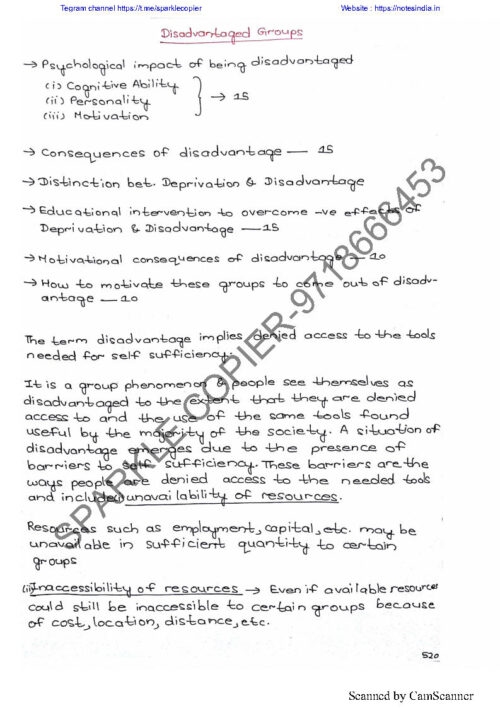 Tegram channel https://t.me/sparklecopier
Website : https://notesindia.in
Disadvantaged Groups
→ Psychological impact of being disadvantaged
(i) Cognitive Ability
(ii) Personality → 15
(iii) Motivation
→ Consequences of disadvantage — 15
→ Distinction bet. Deprivation & Disadvantage
→ Educational intervention to overcome -ve effects of
Deprivation & Disadvantage — 15
→ Motivational consequences of disadvantage — 10
→ How to motivate these groups to come out of disadv-
antage — 10
The term disadvantage implies denied access to the tools
needed for self sufficiency.
It is a group phenomenon & people see themselves as
disadvantaged to the extent that they are denied
access to and the use of the same tools found
useful by the majority of the society. A situation of
disadvantage emerges due to the presence of
barriers to self sufficiency. These barriers are the
ways people are denied access to the needed tools
and include(i)unavailability of resources.
Resources such as employment, capital, etc. may be
unavailable in sufficient quantity to certain
groups
(ii)Inaccessibility of resources → Even if available resources
could still be inaccessible to certain groups because
of cost, location, distance, etc.
520
SPARKLE COPIER-9718666453
Scanned by CamScanner